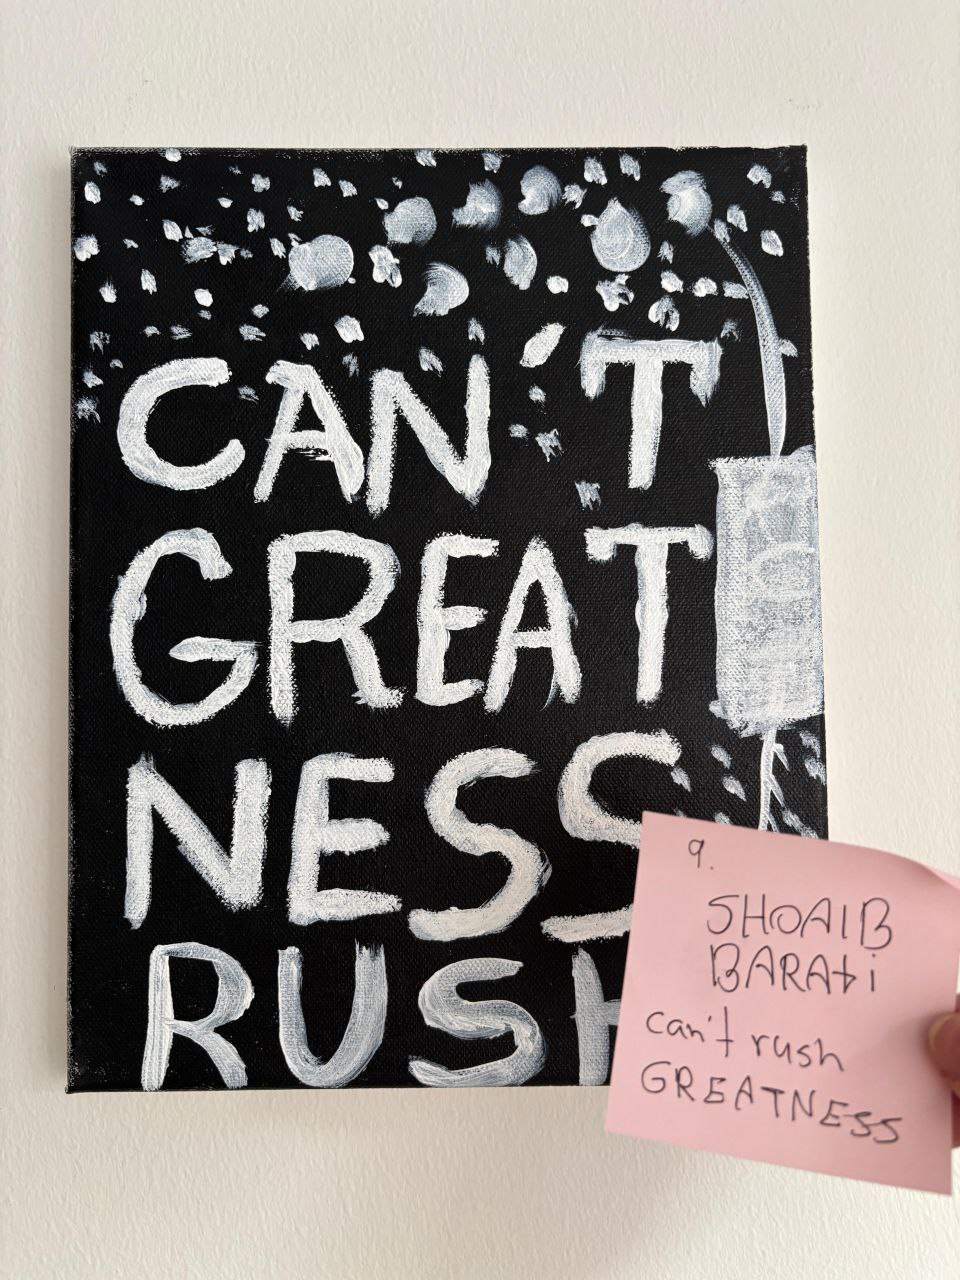 CAN'T
GREAT
NESS
RUSH
9.
SHOAIB
BARAti
can't rush
GREATNESS